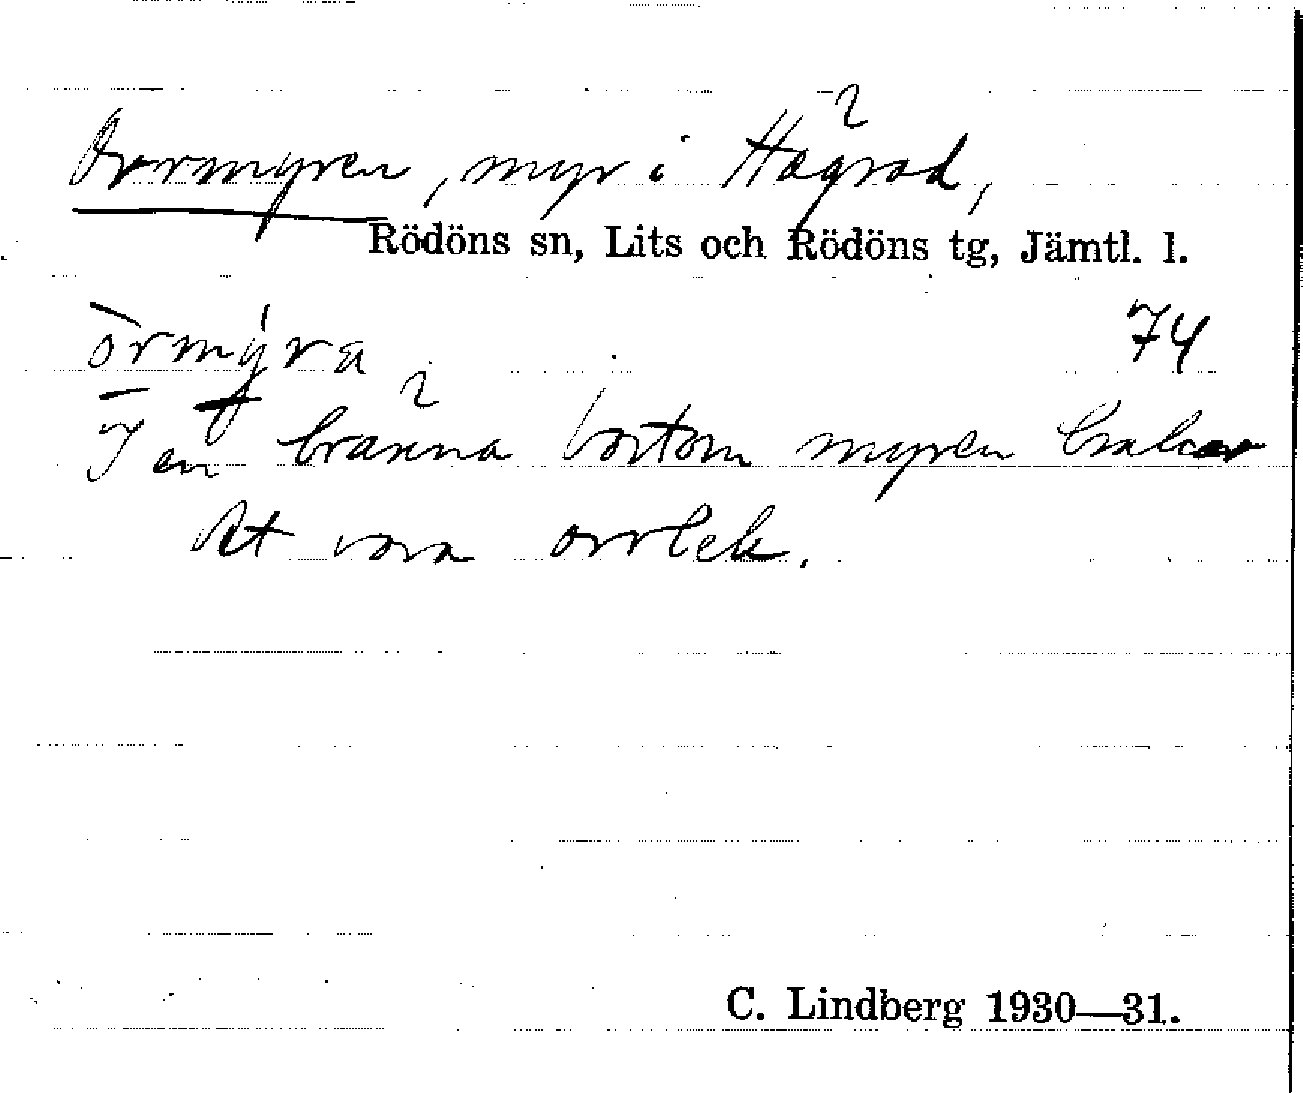 Orrmyren, myr i Hägrad,
Rödöns sn, Lits och Rödöns tg, Jämtl. l.
òrmýra 74
I en bränna bortom myren brukar
det vara orrlek.
C. Lindberg 1930—31.